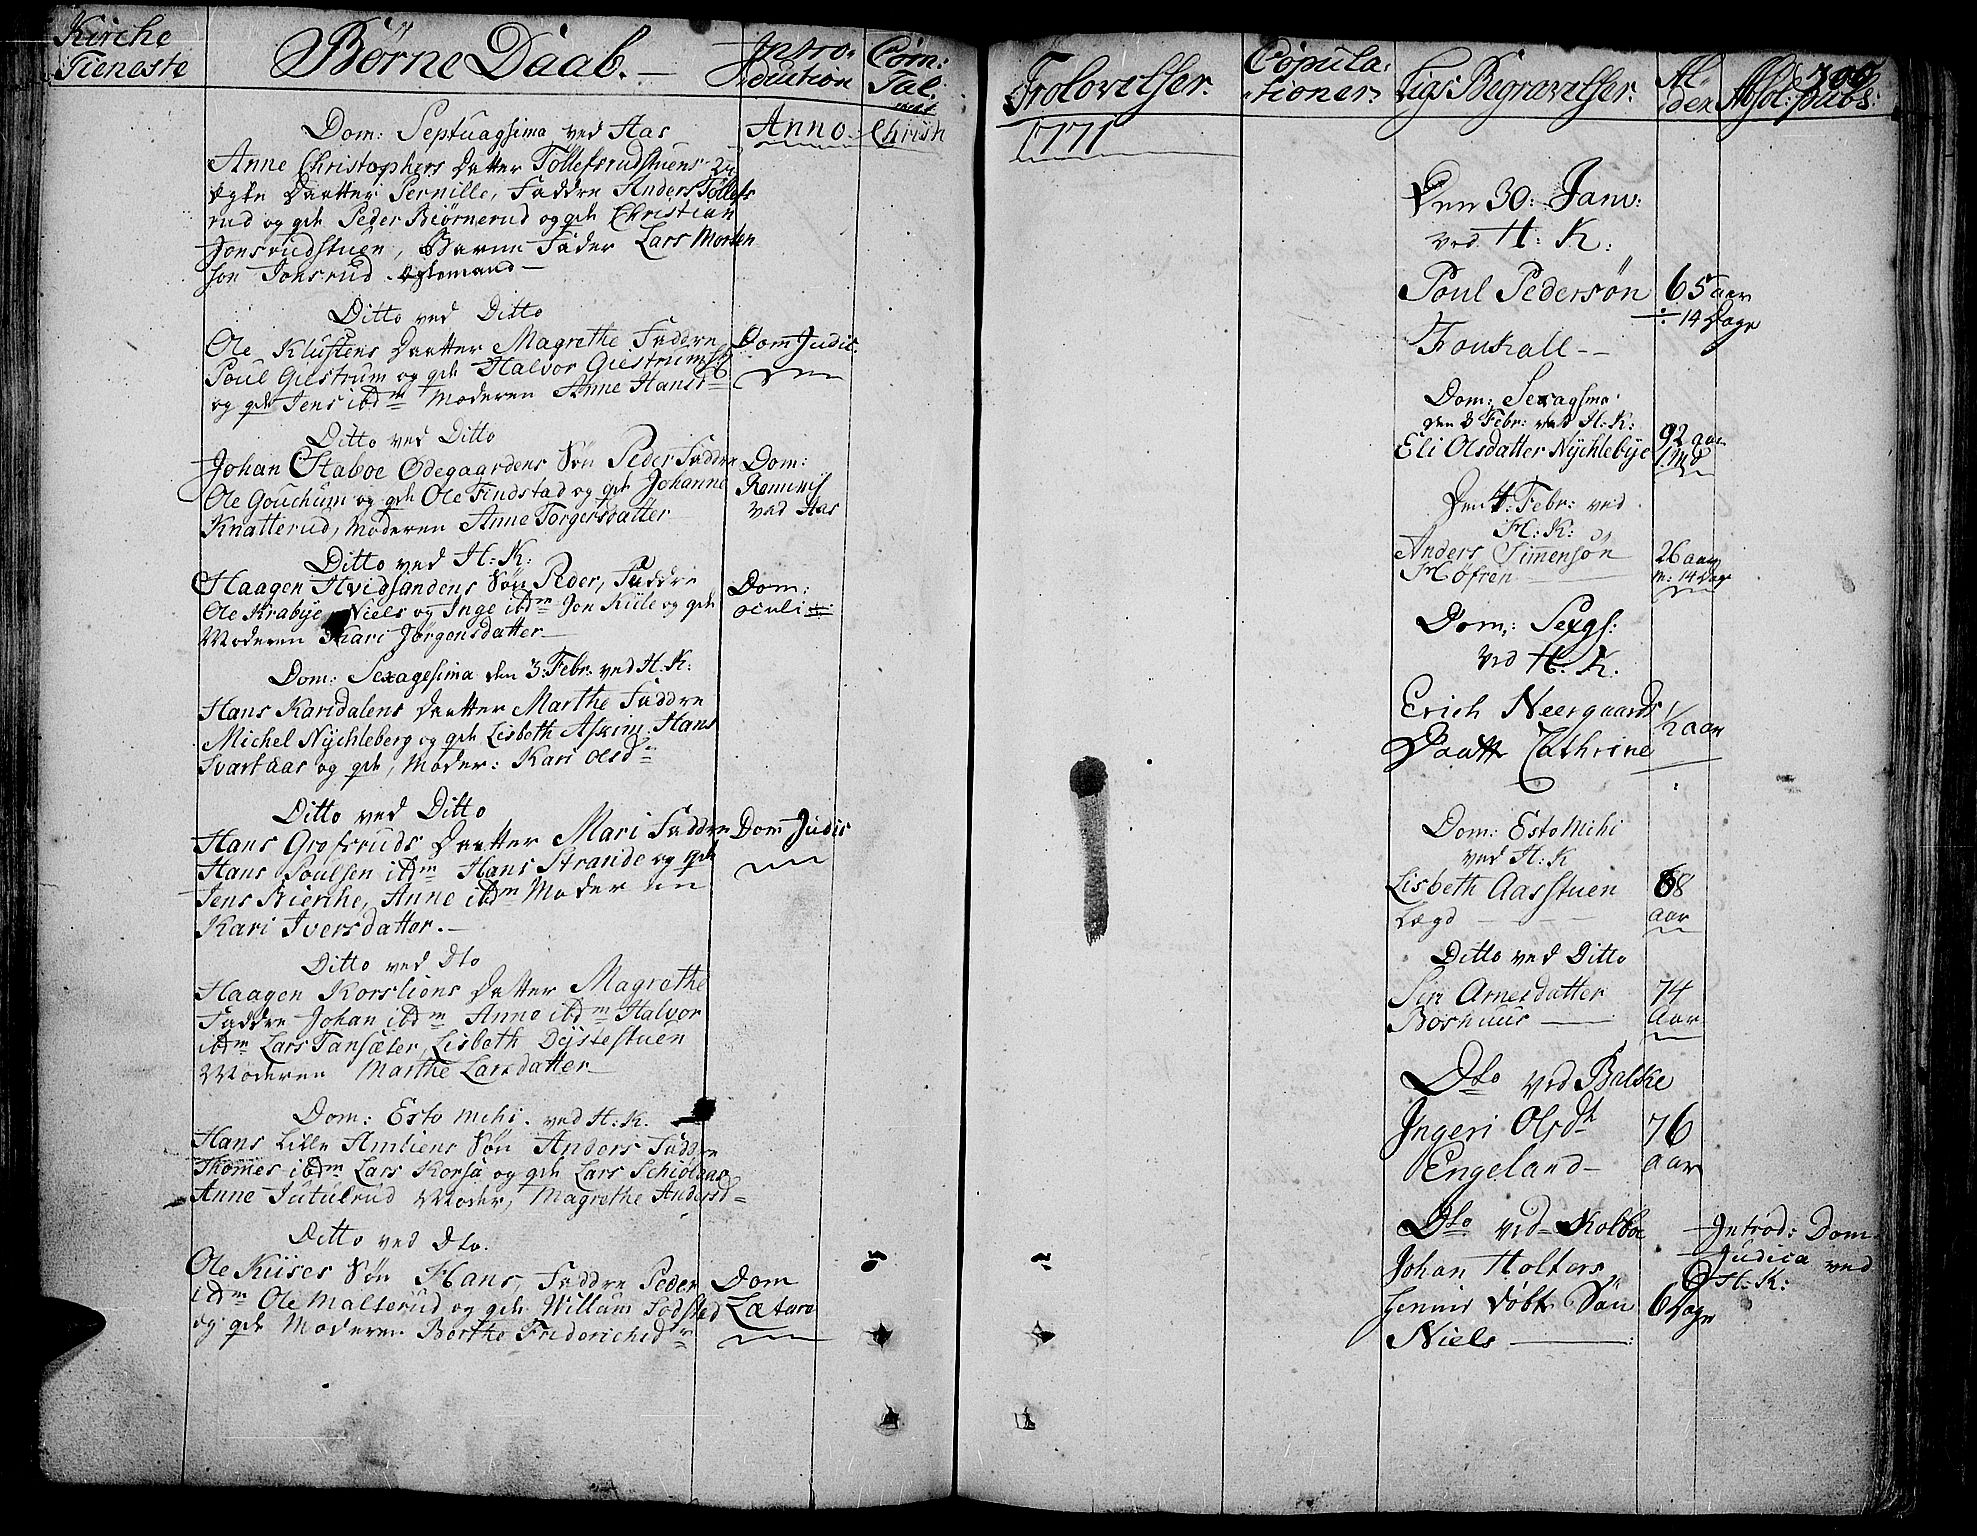 Kirche
Tieneste
Børne Daab.
Intro-
duction
Com:
Tal.
Anno
Christi
Dom: Septuagsima ved Aas
Anne Christophers Datter Tollefsrudstuens
Datter Pernille, Faddre Anders Tollefs
rud og qde Peder Biørnerud og qde Christian
Jonsrudstuen, Barne Fader Lars Morten
søn Jonsrud
Ditto ved Ditto
Ole Klustens Daatter Magrethe Faddre
Poul Giestrum og qde Halvor Giestrum
og qde Jens ibdm Moderen Anne Hansd
Dom Judic:
Ditto ved Ditto
Johan Staboe Ødegaardens Søn Peder Faddre
Ole Gouchum og qde Ole Findstad og qde Johanne
Knatterud, Moderen Anne Torgersdatter
Dom:
Reminis
ved Aas
Ditto ved H: K:
Haagen Hvidsandens Søn Peder, Faddre
Ole Krabye Niels og Inge ibdm Jon Kiile og qde
Moderen Kari Jørgensdatter
Dom:
oculi
Dom: Sexagesima den 3: Febr: ved H: K:
Hans Karidalens Daatter Marthe Faddre
Michel Nychleberg og qde Lisbeth Askim, Hans
Svartaas og qde, Moder: Kari Olsd
Ditto ved Ditto
Hans Grofsruds Daatter Mari Faddre
Hans Poulsen ibdm Hans Strande og qde
Jens Bierche, Anne ibdm Moderen
Kari Iversdatter.
Dom Judic
Ditto ved Dto
Haagen Korslions Datter Magrethe
Faddre Johan ibdm Anne ibdm Halvor
ibdm Lars Tansæter, Lisbeth Dejstestuen
Moderen Marthe Larsdatter
Dom: Esto mihi. ved H: K.
Hans Lille Amliens Søn Anders Faddre
Thomes ibdm Lars Korsa og qde Lars Schiølaas
Anne Jutulrud Moder, Magrethe Andersd
Ditto ved Dto.
Ole Kiises Søn Hans, Faddre Peder
ibdm Ole Malterud og qde Willum Sodsted
og qde Moderen Berthe Friderichsd
Dom
Lætare
Trolovelser.
1771
Copula-
tioner
Ligs Begravelser.
Al
der
Absol: pubs:
300
Den 30: Janv:
ved H: K:
Poul Pedersøn
65 aar
÷ 14 Dage
Foukall
Dom: Sexagsima
den 3 Febr: ved H: K:
Eli Olsdatter Nychlebye
92 aar
Den 4: Febr: ved
H: K:
Anders Simensøn
Høfren
26 aar
m: 14 Dage
Dom: Sexgs:
ved H: K.
Erich Neergaards
Daatt Cathrine
½ aar
Dom: Esto Mihi
ved H: K
Lisbeth Aasstuen
Lægd
68
aar
Ditto ved Ditto
Siri Arnesdatter
Boshuus
74
Aar
Dto ved Balke
Ingeri Olsdt
Engeland
76
aar
Dto ved Kolboe
Johan Holters
hemme døbt Søn
Niels
6 Dage
Introd: Dom
Judica ved
H: K: